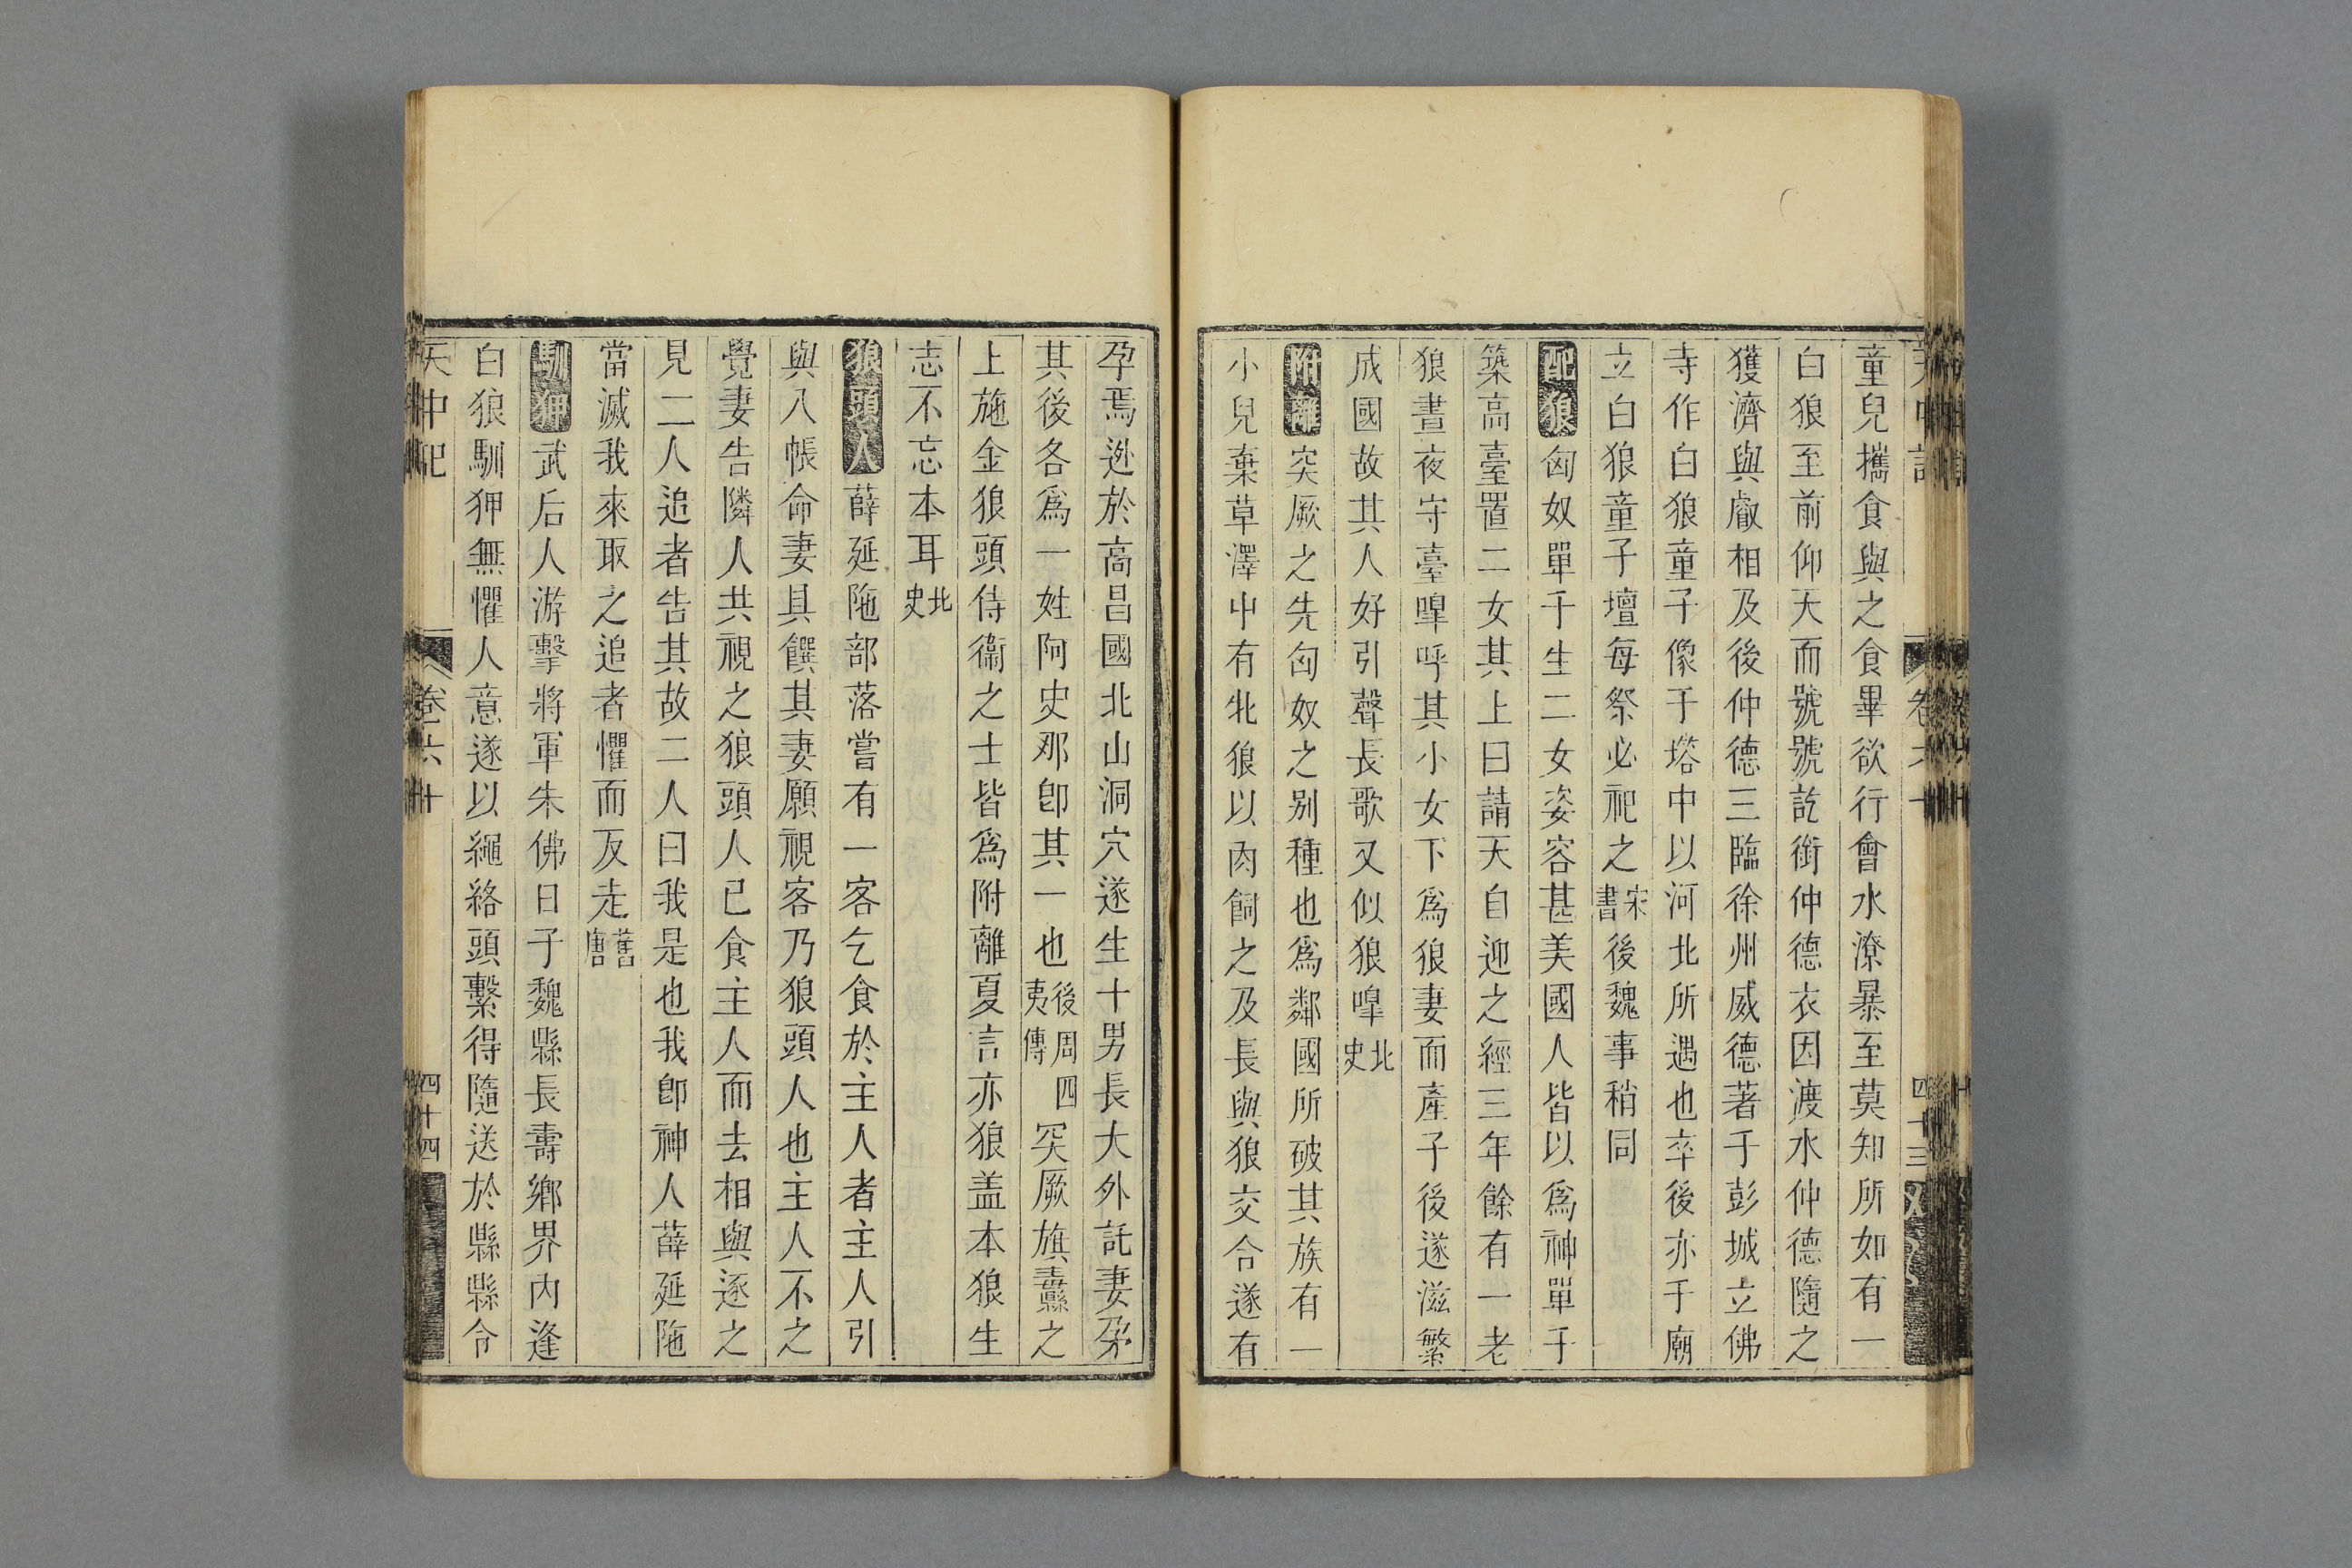 童兒攜食與之食畢欲行會水潦暴至莫知所如有一
白狼至前仰天而號號訖銜仲德衣因渡水仲德隨之
獲濟與叡相及後仲德三臨徐州威德著于彭城立佛
寺作白狼童子像于塔中以河北所遇也卒後亦于廟
立白狼童子壇每祭必祀之宋書後魏事稍同
配狼匈奴單于生二女姿容甚美國人皆以爲神單于
築高臺置二女其上曰請天自迎之經三年餘有一老
狼晝夜守臺嘷呼其小女下爲狼妻而產子後遂滋繁
成國故其人好引聲長歌又似狼嘷北史
附離突厥之先匈奴之别種也爲鄰國所破其族有一
小兒棄草澤中有牝狼以肉飼之及長與狼交合遂有
孕焉逃於高昌國北山洞穴遂生十男長大外託妻孕
其後各爲一姓阿史那卽其一也後周四夷傳突厥旗纛之
上施金狼頭侍衞之士皆爲附離夏言亦狼盖本狼生
志不忘本耳北史
狼頭人薛延陁部落嘗有一客乞食於主人者主人引
與入帳命妻具饌其妻願視客乃狼頭人也主人不之
覺妻告隣人共視之狼頭人已食主人而去相與逐之
見二人追者告其故二人曰我是也我卽神人薛延陁
當滅我來取之追者懼而反走舊唐
馴狎武后人游擊將軍朱佛日子魏縣長壽鄉界内逢
白狼馴狎無懼人意遂以繩絡頭繫得隨送於縣縣令
天中記 卷六十 四十四